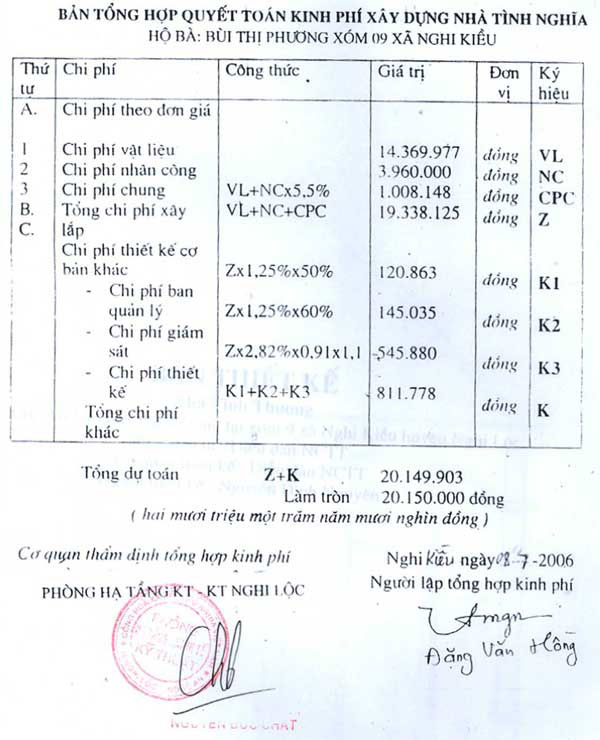 BẢN TỔNG HỢP QUYẾT TOÁN KINH PHÍ XÂY DỰNG NHÀ TÌNH NGHĨA
HỘ BÀ: BÙI THỊ PHƯƠNG XÓM 09 XÃ NGHI KIỀU
Thứ tự Chi phí Công thức Giá trị Đơn vị Ký hiệu
A. Chi phí theo đơn giá
1 Chi phí vật liệu 14.369.977 đồng VL
2 Chi phí nhân công 3.960.000 đồng NC
3 Chi phí chung VL+NCx5,5% 1.008.148 đồng CPC
B. Tổng chi phí xây VL+NC+CPC 19.338.125 đồng Z
C. lắp
Chi phí thiết kế cơ
bản khác Zx1,25%x50% 120.863 đồng K1
- Chi phí ban
quản lý Zx1,25%x60% 145.035 đồng K2
- Chi phí giám
sát Zx2,82%x0,91x1,1 545.880 đồng K3
- Chi phí thiết
kế K1+K2+K3 811.778 đồng K
Tổng chi phí
khác
Tổng dự toán Z+K 20.149.903
Làm tròn 20.150.000 đồng
( hai mươi triệu một trăm năm mươi nghìn đồng )
Cơ quan thẩm định tổng hợp kinh phí
PHÒNG HẠ TẦNG KT - KT NGHI LỘC
Nghi Kiều ngày 08-7-2006
Người lập tổng hợp kinh phí
Đặng Văn Hồng